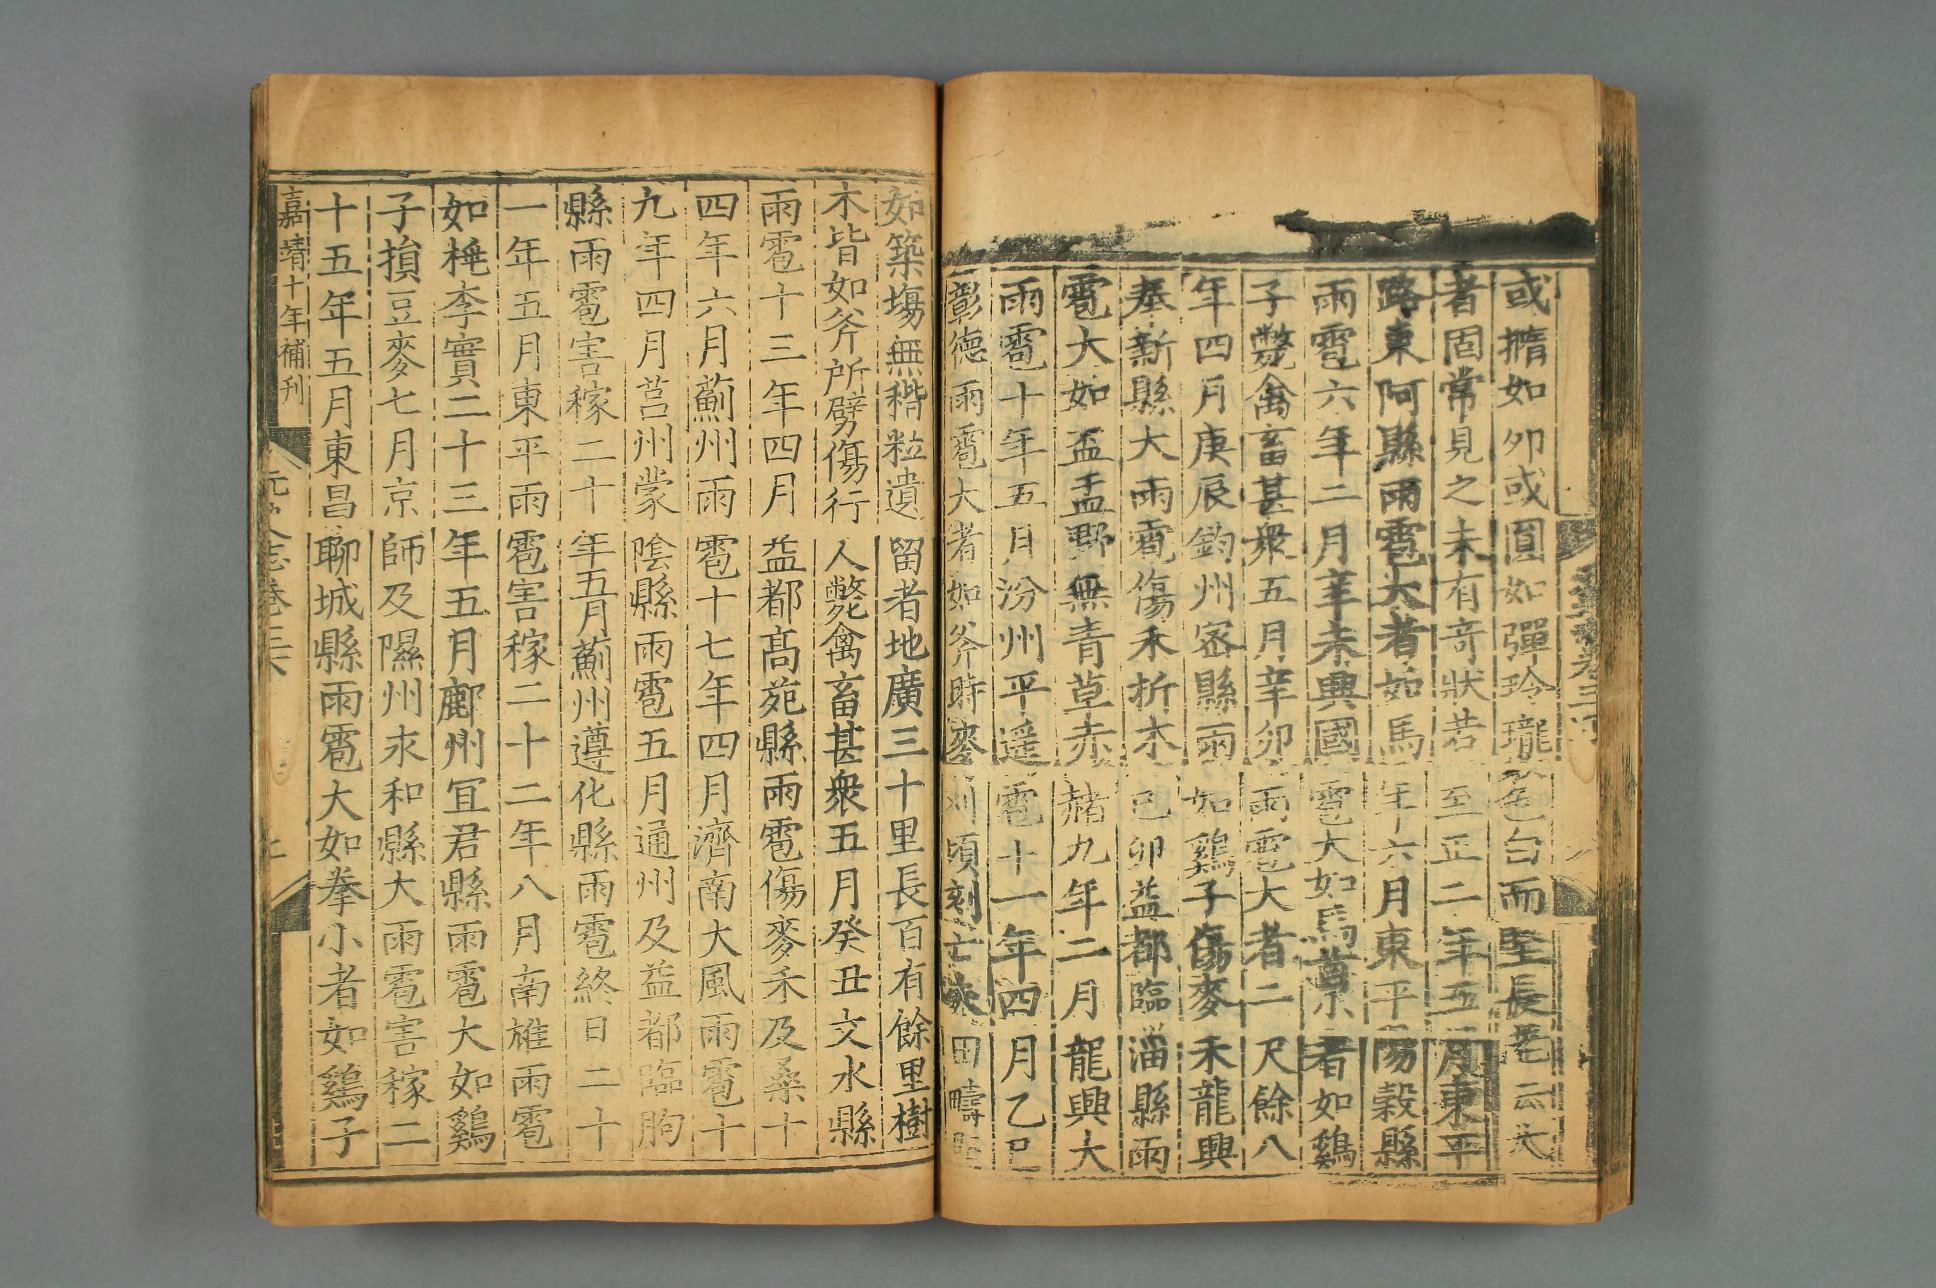 或橢如卵或圓如彈玲瓏色白而堅長老云大
者固常見之未有奇狀若至正二年五月東平
路東阿縣雨雹大者如馬年六月東平陽穀縣
雨雹六年二月辛未興國雹大如馬首小者如鷄
子斃禽畜甚衆五月辛卯雨雹大者二尺餘八
年四月庚辰鈞州密縣雨如鷄子傷麥禾龍興
奉新縣大雨雹傷禾折木己卯益都臨淄縣雨
雹大如盃盂野無青草赤赭九年二月龍興大
雨雹十年五月汾州平遥雹十一年四月乙巳
彰德雨雹大者如斧時麥刈頃刻亡失田疇堅
如築塲無稭粒遺留者地廣三十里長百有餘里樹
木皆如斧所劈傷行人斃禽畜甚衆五月癸丑文水縣
雨雹十三年四月益都高苑縣雨雹傷麥禾及桑十
四年六月薊州雨雹十七年四月濟南大風雨雹十
九年四月莒州蒙隂縣雨雹五月通州及益都臨朐
縣雨雹害稼二十年五月薊州遵化縣雨雹終日二十
一年五月東平雨雹害稼二十二年八月南雄雨雹
如桃李實二十三年五月鄜州宜君縣雨雹大如鷄
子損豆麥七月京師及隰州永和縣大雨雹害稼二
十五年五月東昌聊城縣雨雹大如拳小者如鷄子
嘉靖十年補刊
元史志卷三下